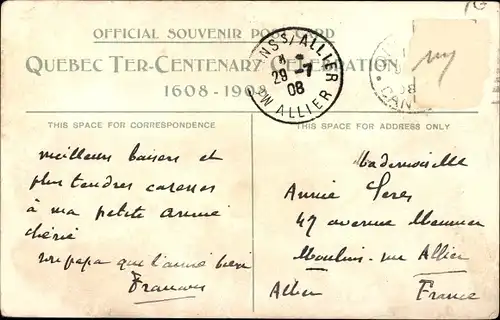 OFFICIAL SOUVENIR POST CARD
QUEBEC TER-CENTENARY CELEBRATION
1608-1908
NSS/ALLIER
29 -7
08
ALLIER
08
CAN
THIS SPACE FOR CORRESPONDENCE
THIS SPACE FOR ADDRESS ONLY
meilleurs baisers et
plus tendres caresses
à ma petite
chérie
papa que l'aime bien
Mademoiselle
Annie
47 avenue
Moulins-sur Allier
Allier France